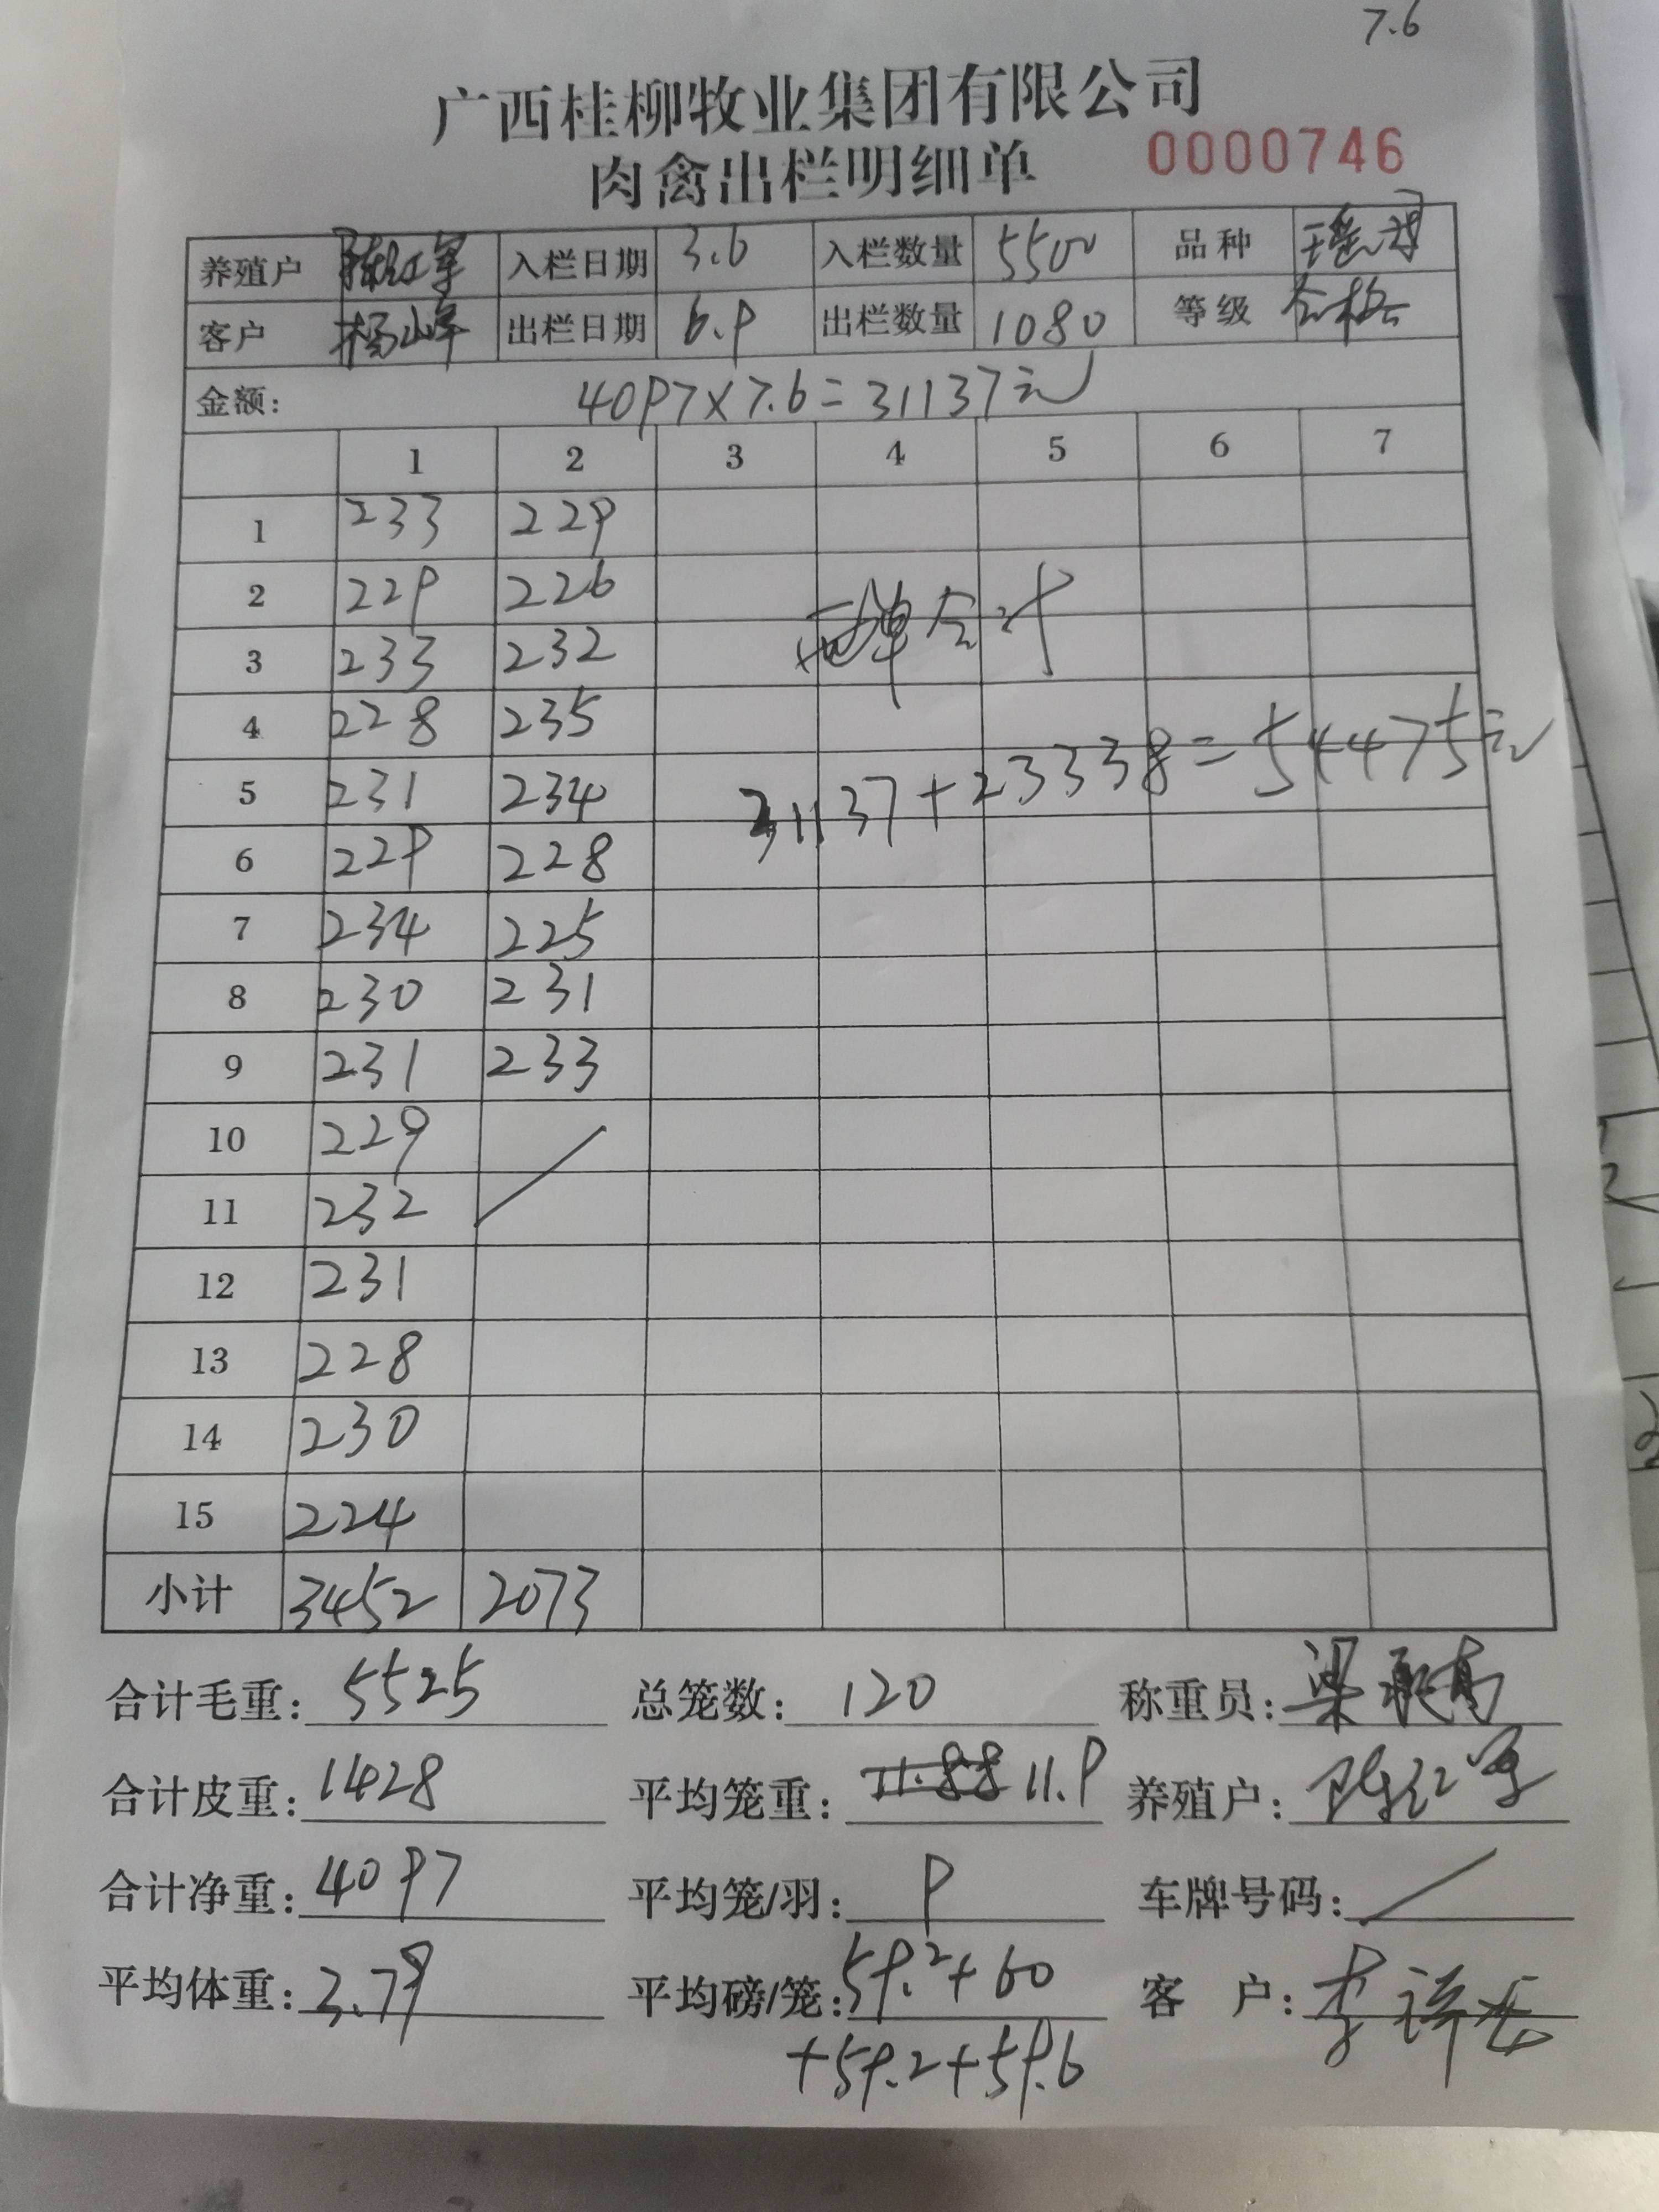 7.6
广西桂柳牧业集团有限公司
肉禽出栏明细单 0000746
养殖户 陈红军 入栏日期 3.6 入栏数量 5500 品种
客户 杨山峰 出栏日期 6.9 出栏数量 1080 等级 合格
金额: 4097×7.6=31137元
1 2 3 4 5 6 7
1 233 229
2 229 226
3 233 232
两单合计
4 228 235
31137+23338=54475元
5 231 234
6 229 228
7 234 225
8 230 231
9 231 233
10 229
11 232
12 231
13 228
14 230
15 224
小计 3452 2073
合计毛重: 5525 总笼数: 120 称重员:
合计皮重: 1428 平均笼重: 11.88 11.9 养殖户: 陈红军
合计净重: 4097 平均笼/羽: 9 车牌号码: /
平均体重: 3.79 平均磅/笼: 59.2+60 客 户:
+59.2+59.6